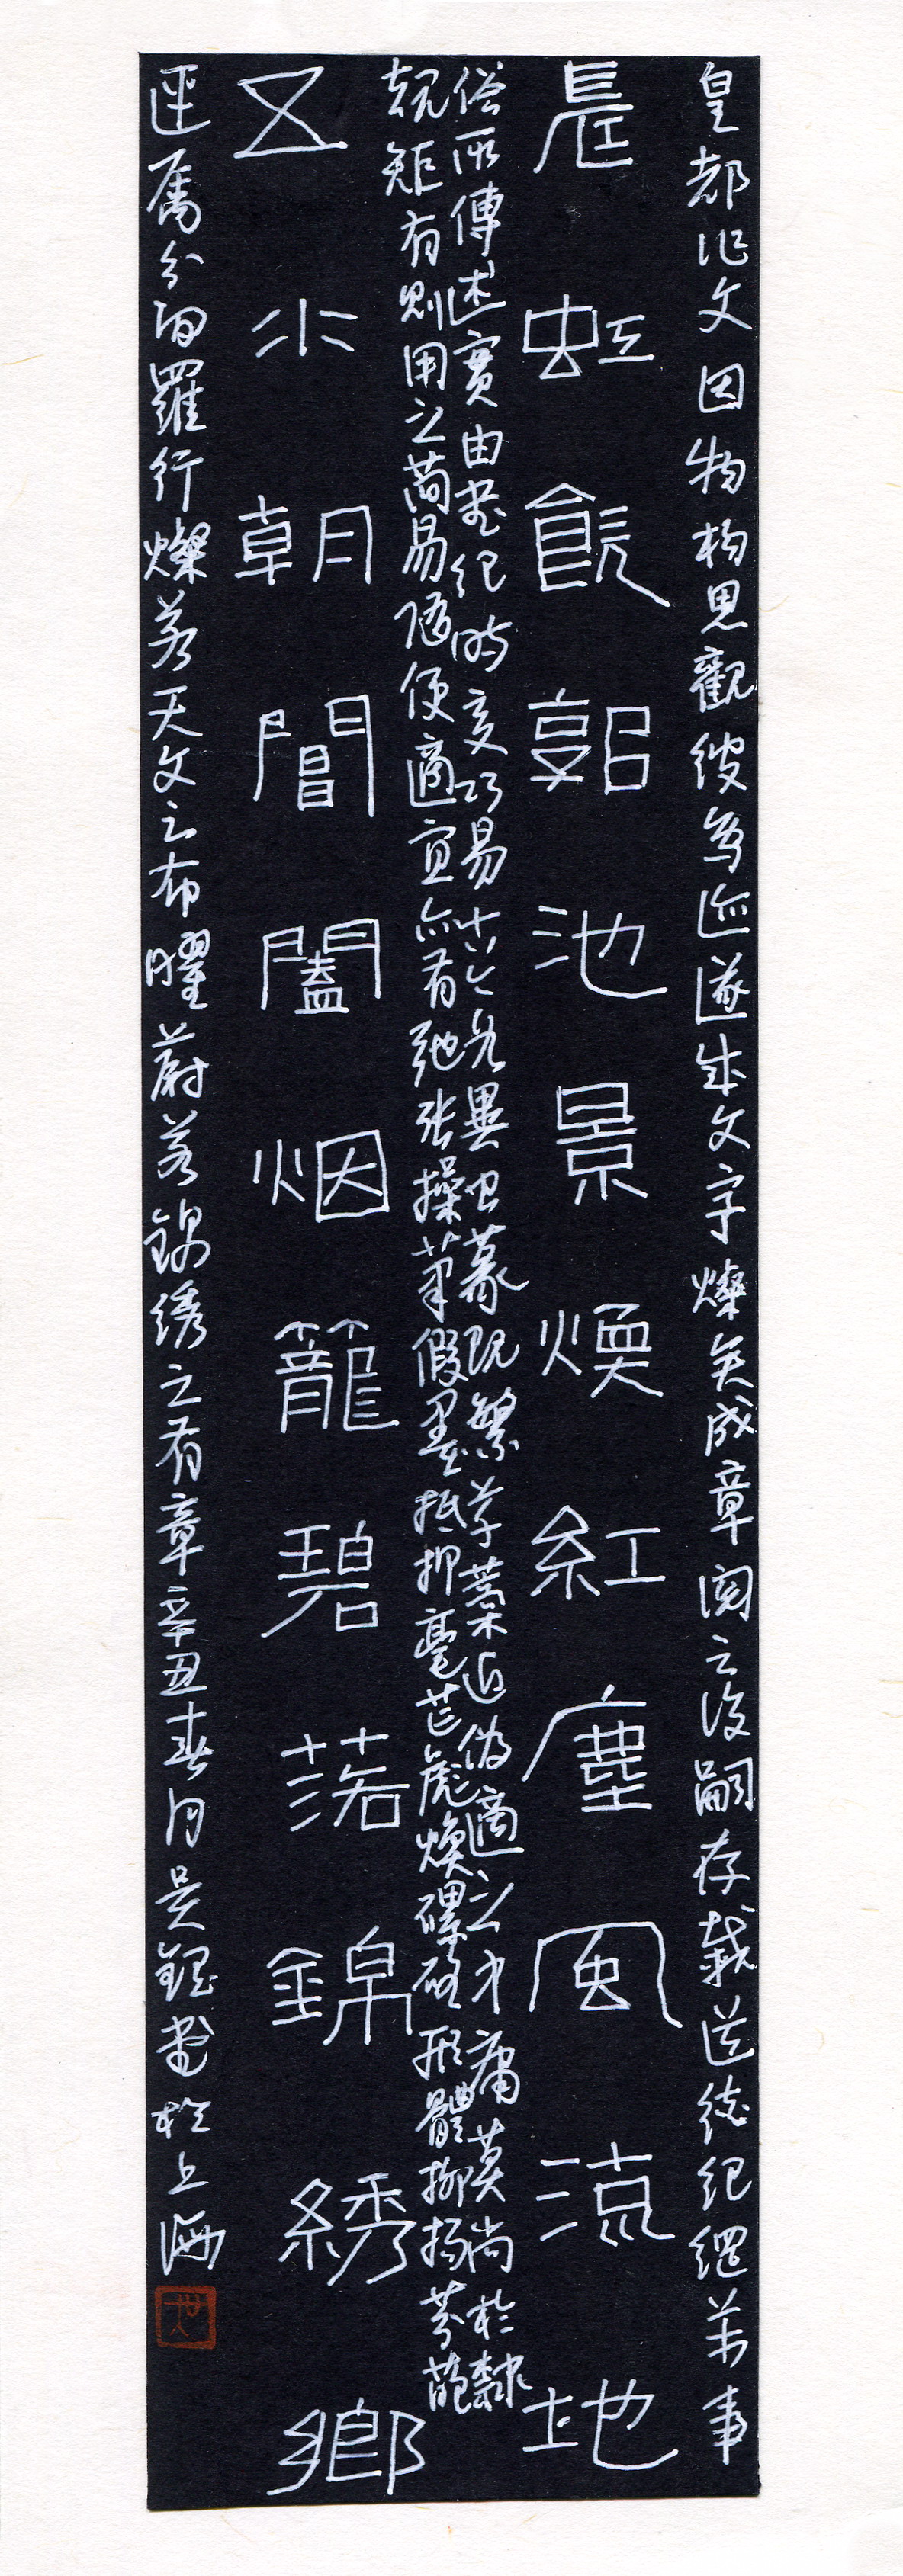 皇都作文因物构思觀彼鳥迹遂成文字燦矣成章閲之後嗣存載道德紀綱萬事
長虹飲郭池景煥紅塵風流地
俗所傳述實由書纪時变巧易古今各異虫篆既繁草藁近偽適之中庸莫尚於隸
规矩有則用之蕳易随便適宜亦有弛张操筆假墨抵押毫芒彪煥磥硌形體抑揚芬葩
五水朝閶闔烟籠碧落錦綉鄉
連属分间羅行燦若天文之布曜蔚若錦绣之有章辛丑春月吴鋰書於上海